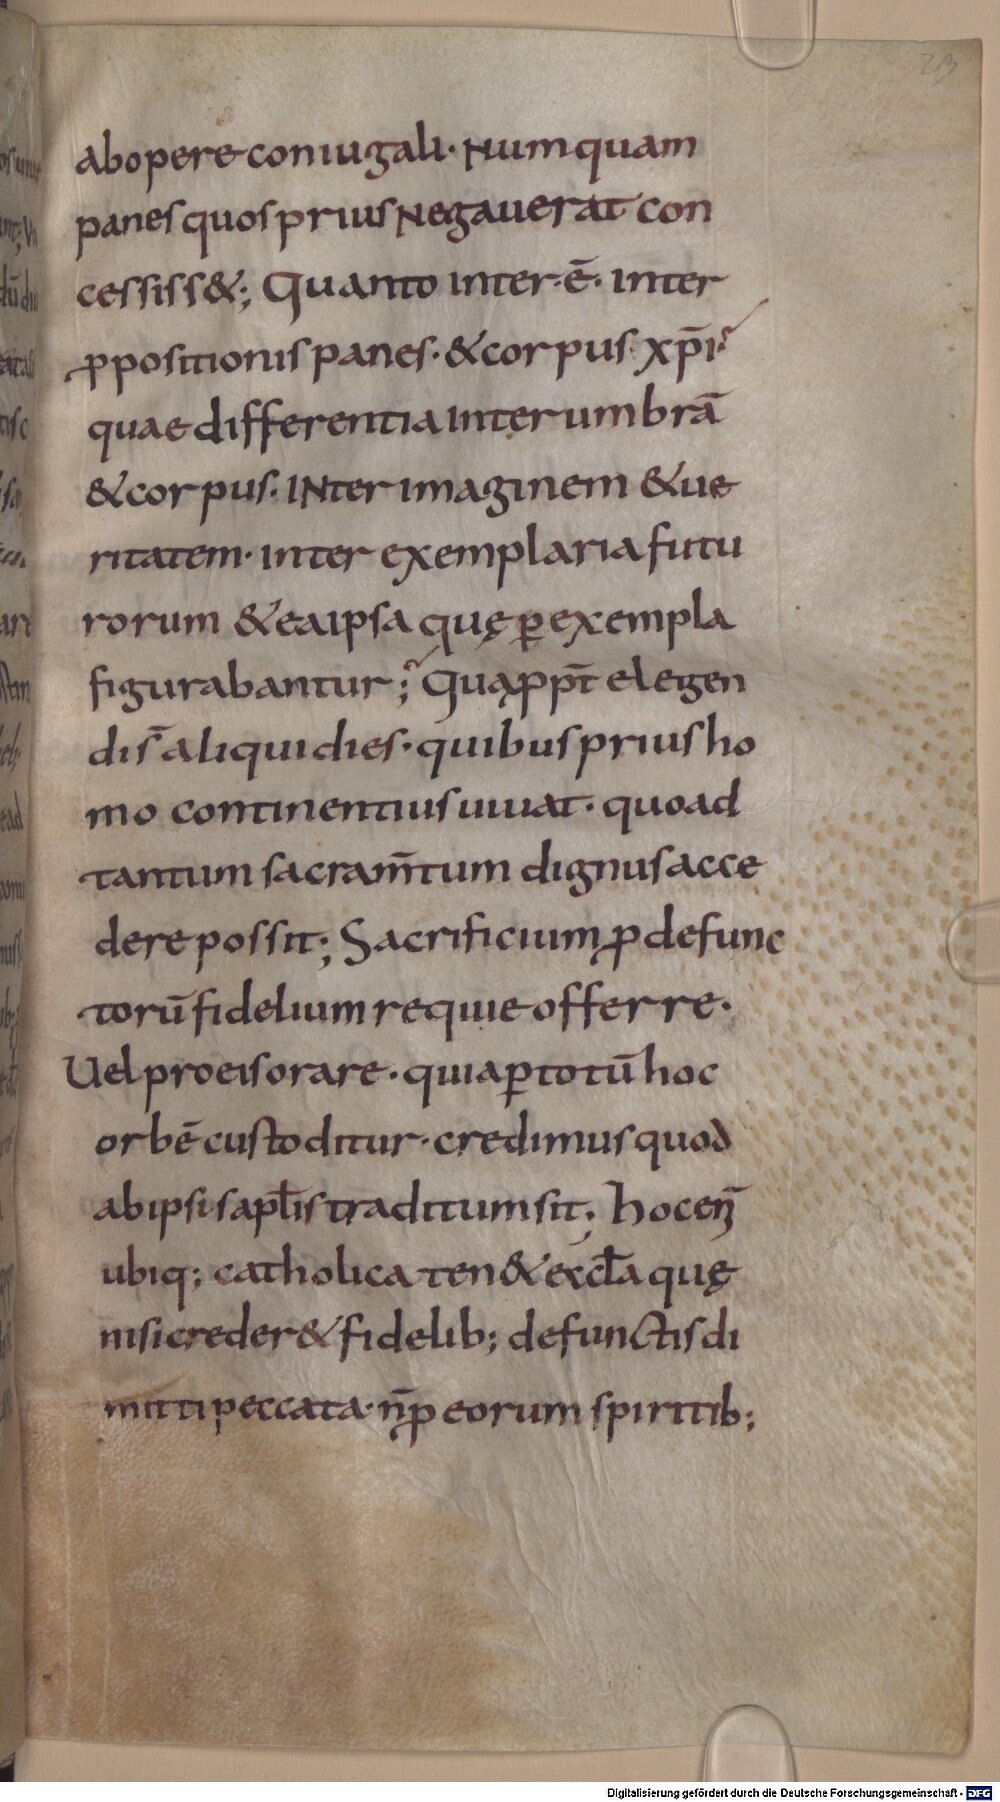 23
ab opere coniugali· Numquam
panes quos prius Negauerat con
cessiss&; Quanto inter·ē· inter
ꝓpositionis panes· & corpus xp̄i
quae differentia inter umbrā
& corpus· INter imaginem & ue
ritatem· inter exemplaria futu
rorum & ea ipsa quę ꝑ exempla
figurabantur; Quaꝓpt̄ elegen
di s̄ aliqui dies· quibus prius ho
mo continentius uiuat· quo ad
tantum sacram̄tum dignus acce
dere possit; Sacrificium ꝓ defunc
torū fidelium requie offerre·
Uel pro eis orare· quia ꝑ totū hoc
orbē custoditur· credimus quod
ab ipsis apl̄is traditum sit; hoc en̄
ubiq; catholica ten& eccl̄a quę
nisi creder& fidelib; defunctis di
mitti peccata· n̄ ꝓ eorum spiritib;
Digitalisierung gefördert durch die Deutsche Forschungsgemeinschaft - DFG